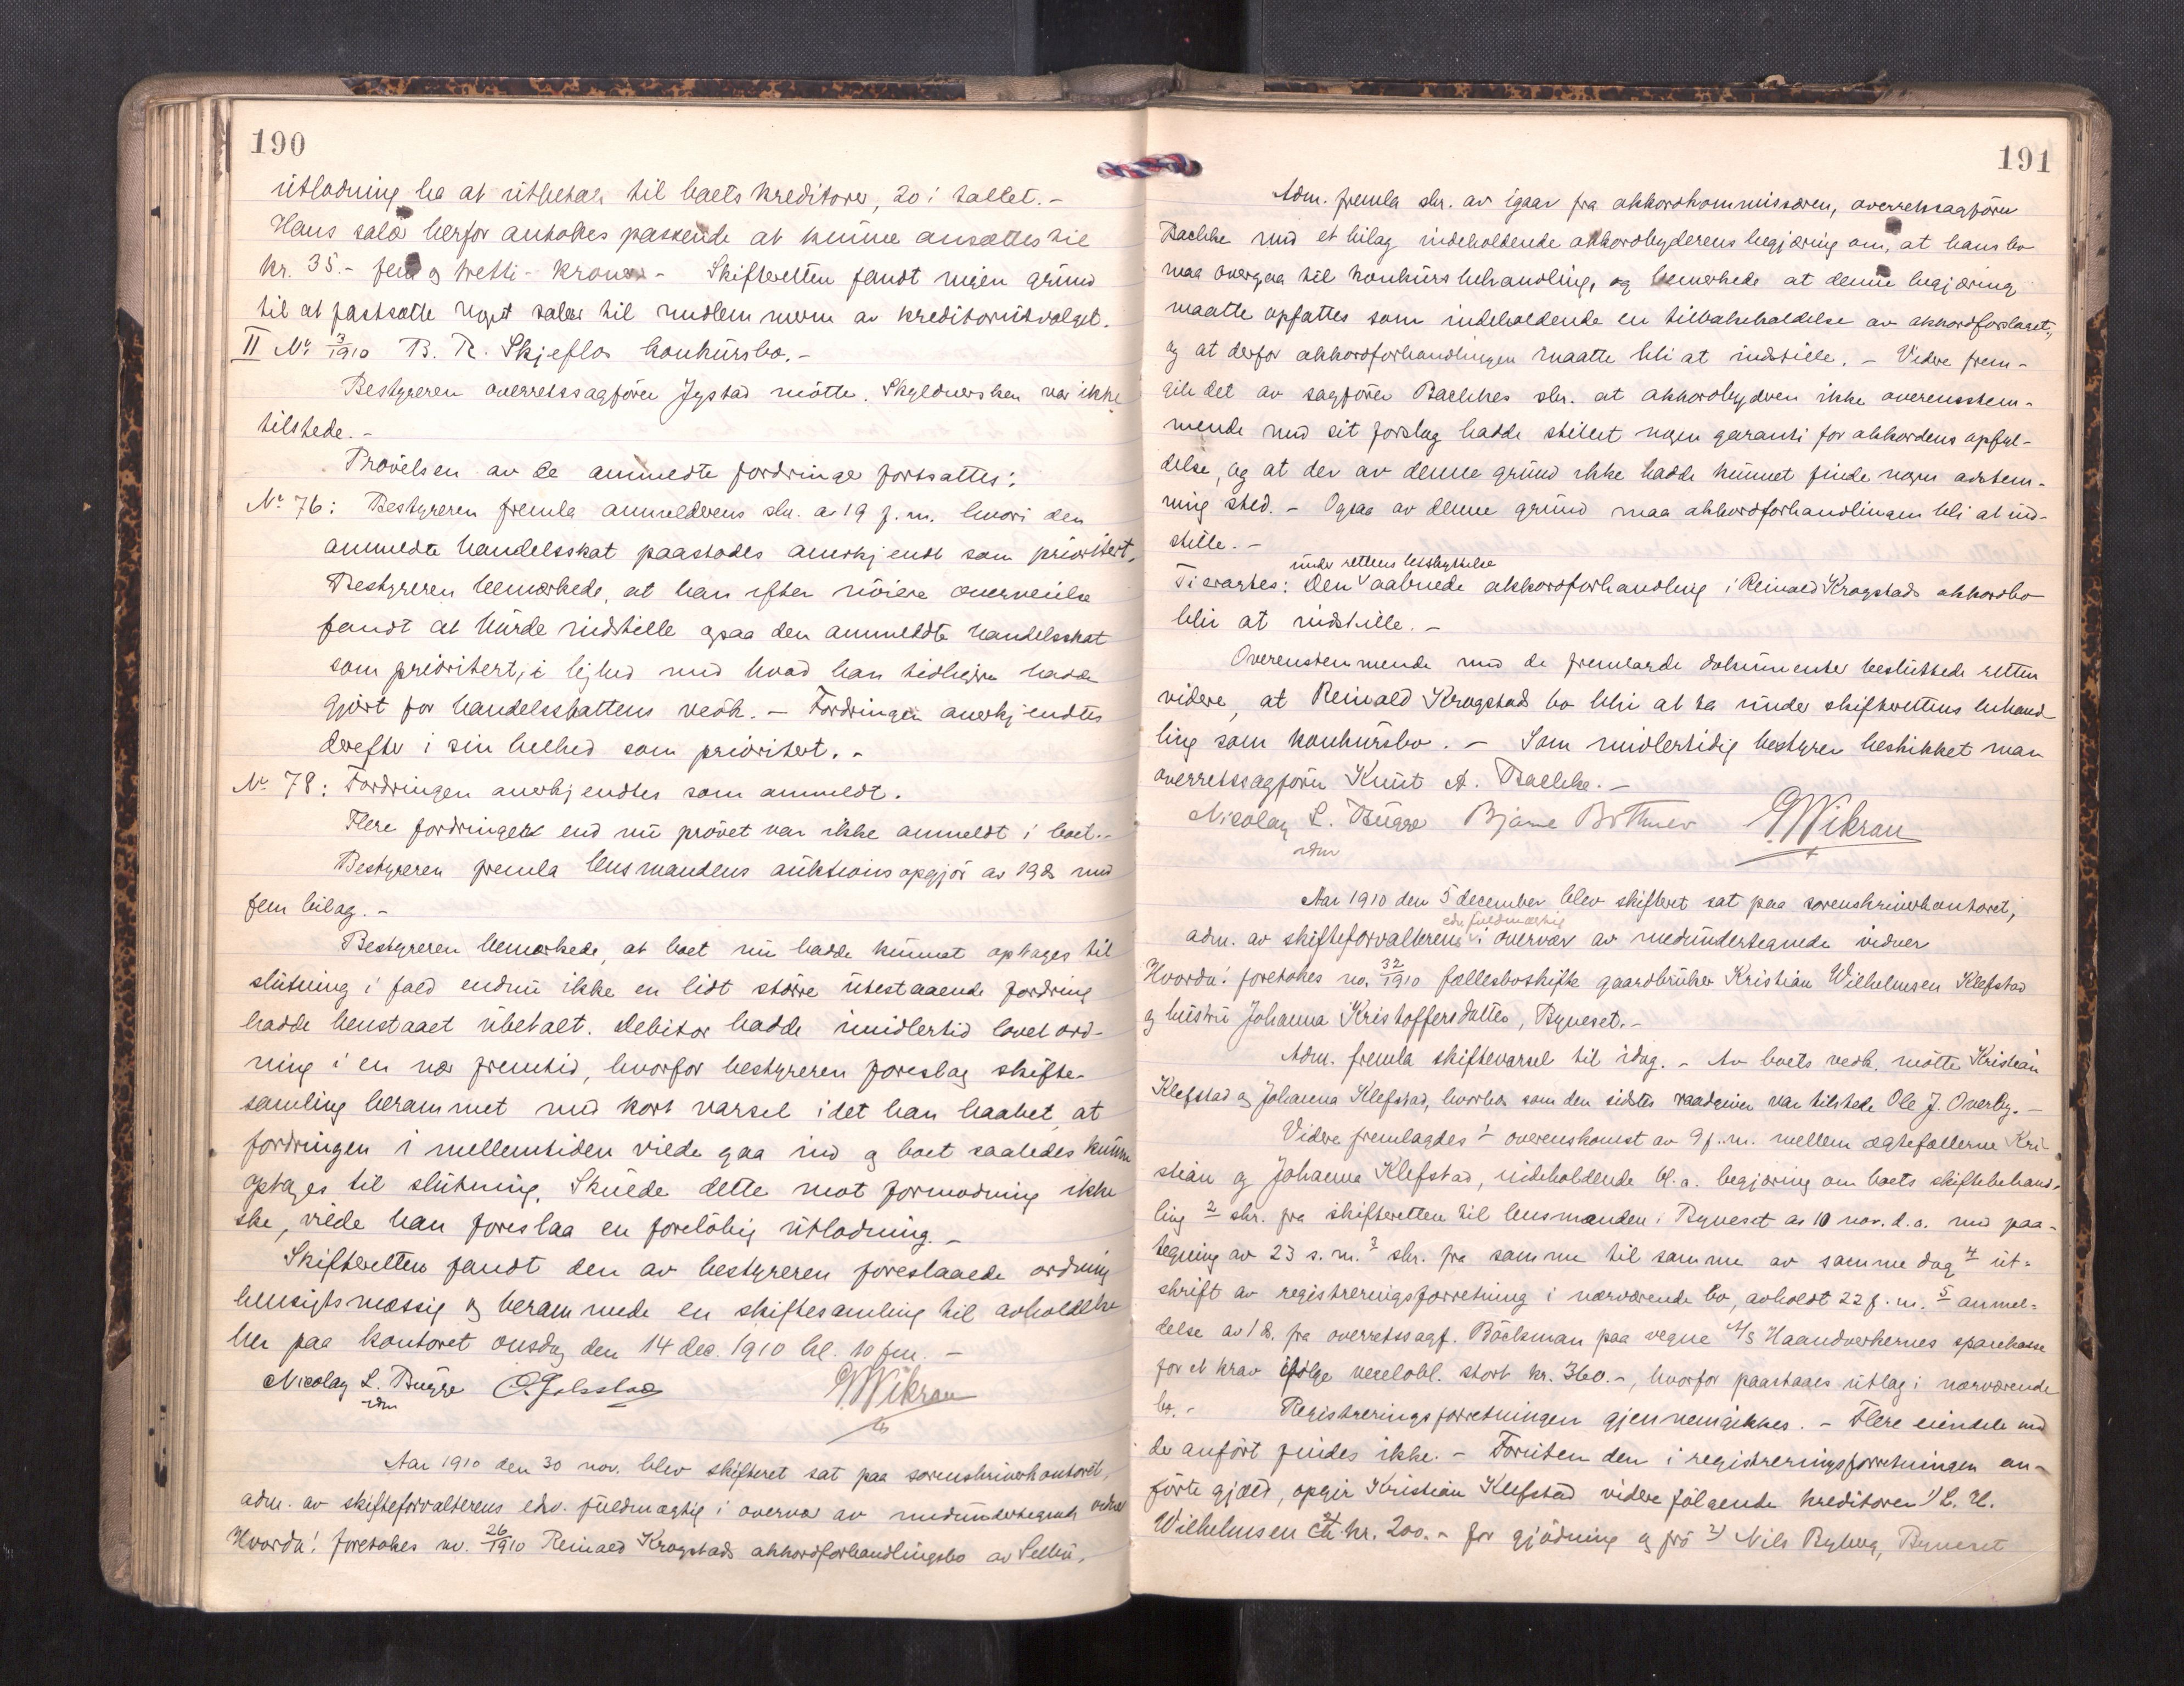 190
utlodning ha at utbetale til boets kreditorer, 20 i tallet. -
Hans salær herfor antokes passende at kunne ansættes til
kr. 35.- fem og tretti - kroner - Skifteretten fandt ingen grund
til at fastsætte noget salær til medlemmerne av kreditorutvalget.
II No. 3/1910 B. R. Skjeflos konkursbo. -
Bestyreren overretssagfører Jystad møtte. Skyldnersken var ikke
tilstede. -
Prøvelsen av de anmeldte fordringer fortsattes:
No 76: Bestyreren fremla anmelderens skr. av 19 f.m. hvori den
anmeldte handelsskat paastodes anerkjendt som prioritert.
Bestyreren bemerkede, at han efter nøiere overveielse
fandt at burde indstille ogsaa den anmeldte handelsskat
som prioritert, i lighed med hvad han tidligere hadde
gjort for handelsskattens vedk. - Fordringen anerkjendtes
derefter i sin helhed som prioritert. -
No 78: Fordringen anerkjendtes som anmeldt.
Flere fordringer end nu prøvet var ikke anmeldt i boet. -
Bestyreren fremla lensmandens auktionsopgjør av 19 ds med
fem bilag. -
Bestyreren bemerkede, at boet nu hadde kunnet optages til
slutning i fald endnu ikke en lidt større utestaaende fordring
hadde henstaaet ubetalt. Debitor hadde imidlertid lovet ord-
ning i en nær fremtid, hvorfor bestyreren foreslog skifte-
samling berammet med kort varsel idet han haabet, at
fordringen i mellemtiden vilde gaa ind og boet saaledes kunne
optages til slutning. Skulde dette mot formodning ikke
ske, vilde han foreslaa en foreløbig utlodning. -
Skifteretten fandt den av bestyreren foreslaaede ordning
hensigtsmæssig og berammede en skiftesamling til avholdelse
her paa kontoret onsdag den 14 dec. 1910 kl. 10 fm. -
Nicolay L. Bugge GWikran
Aar 1910 den 30 nov. blev skifteret sat paa sorenskriverkontoret,
adm. av skifteforvalterens edv. fuldmægtig i overvær av medundertegnede vidner
Hvorda: foretokes no. 26/1910 Reinald Krogstads akkordforhandlingsbo av Selbu.
191
Adm. fremla skr. av igaar fra akkordkommissæren, overretssagfører
Baekke med et bilag indeholdende akkordbyderens begjæring om, at hans bo
maa overgaa til konkursbehandling, og bemerkede at denne begjæring
maatte opfattes som indeholdende en tilbakekaldelse av akkordforslaget,
og at derfor akkordforhandlingen maatte bli at indstille. - Videre frem-
gik det av sagfører Baekkes skr. at akkordbyderen ikke overensstem-
mende med sit forslag hadde stillet nogen garanti for akkordens opfyl-
delse, og at der av denne grund ikke hadde kunnet finde nogen avstem-
ning sted. - Ogsaa av denne grund maa akkordforhandlingen bli at ind-
stille. -
under rettens beskyttelse
Ti eragtes: Den aabnede akkordforhandling i Reinald Krogstads akkordbo
blir at indstille. -
Overensstemmende med de fremlagte dokumenter besluttede retten
videre, at Reinald Krogstads bo blir at ta under skifterettens behand-
ling som konkursbo. - Som midlertidig bestyrer beskikket man
overretssagfører Knut A. Baekke. -
Nicolay L. Bugge Bjarne Bothner GWikran
Aar 1910 den 5 december blev skifteret sat paa sorenskriverkontoret,
edv. fuldmægtig
adm. av skifteforvalterens i overvær av medundertegnede vidner
Hvorda: foretokes no. 32/1910 fællesboskifte gaardbruker Kristian Wilhelmsen Klefstad
og hustru Johanna Kristoffersdatter, Byneset. -
Adm. fremla skiftevarsel til idag. - Av boets vedk. møtte Kristian
Klefstad og Johanna Klefstad, hvorhos som den sidstes raadgiver var tilstede Ole J. Overby. -
Videre fremlagdes 1 overenskomst av 9 f.m. mellem ægtefællerne Kri-
stian og Johanna Klefstad, indeholdende bl.a. begjæring om boets skiftebehand-
ling 2 skr. fra skifteretten til lensmanden i Byneset av 10 nov. d.a. med paa-
tegning av 23 s.m. 3 skr. fra samme til samme av samme dag 4 ut-
skrift av registreringsforretning i nærværende bo, avholdt 22 f.m. 5 anmel-
delse av 1 ds. fra overretssagf. Böckman paa vegne A/S Haandverkernes sparekasse
for et krav ifølge vexelobl. stort kr. 360.-, hvorfor paastaaes utlæg i nærværende
bo. - Registreringsforretningen gjennemgikkes. - Flere eiendele end
der anført findes ikke. - Foruten den i registreringsforretningen an-
førte gjæld, opgir Kristian Klefstad videre følgende kreditorer 1) L. H.
Wilhelmsen ca. kr. 200.- for gjødning og frø 2) Nils Ryberg, Byneset